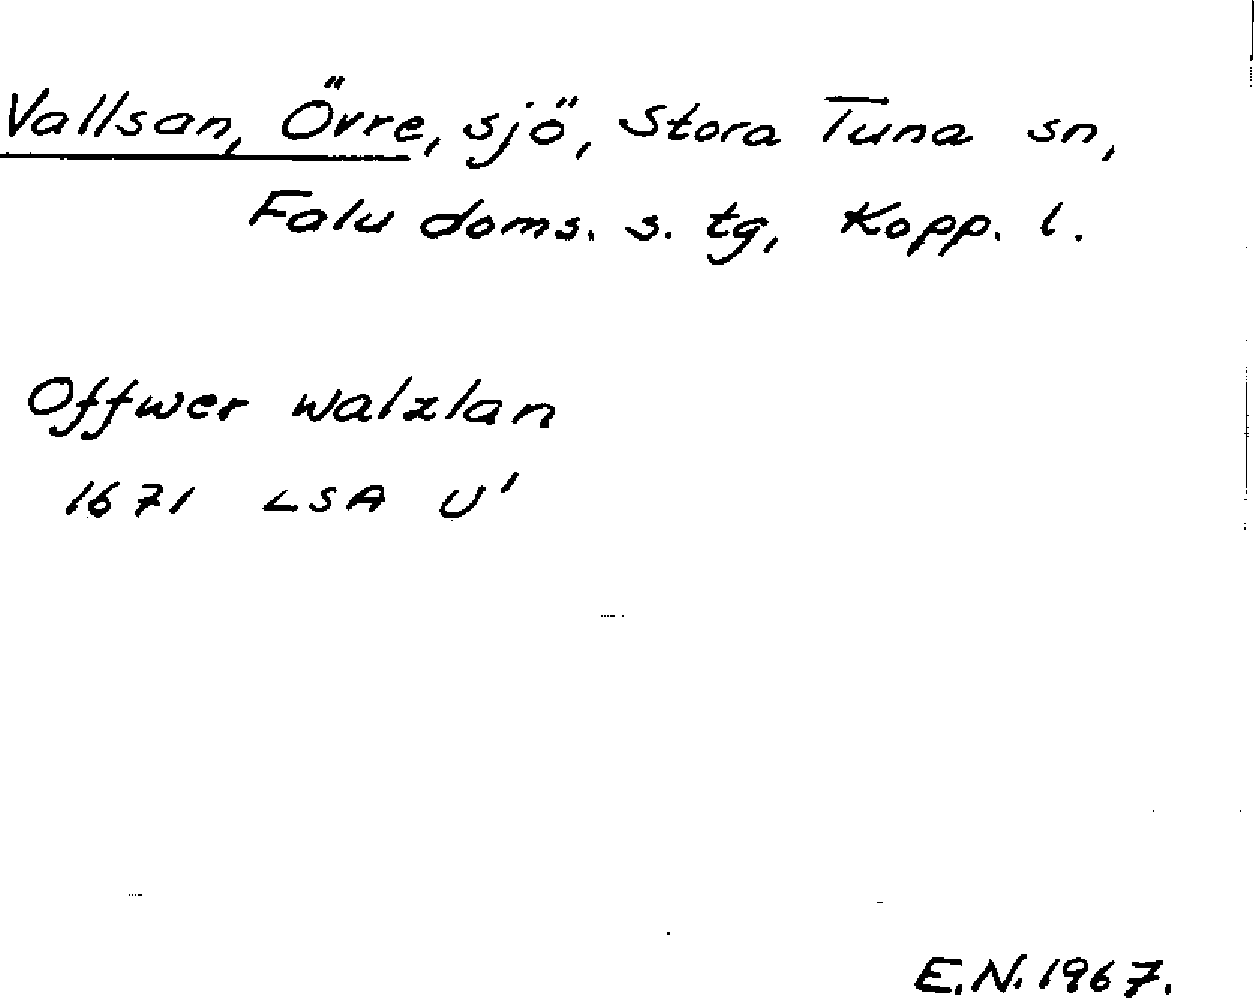 Vallsan, Övre, sjö, Stora Tuna sn,
Falu doms. s. tg, Kopp. l.
Offwer walzlan
1671 LSA U'
E.N. 1967.